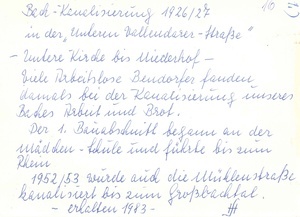 Bach-Kanalisierung 1926/27
in der „Unteren Vallendarer-Straße"
- Untere Kirche bis Niederhof -
Viele Arbeitslose Bendorfer fanden
damals bei der Kanalisierung unseres
Baches Arbeit und Brot.
Der 1. Bauabschnitt begann an der
Mädchen-Schule und führte bis zum
Rhein
1952/53 wurde auch die Mühlenstraße
kanalisiert bis zum Großbachtal.
- erhalten 1983 -